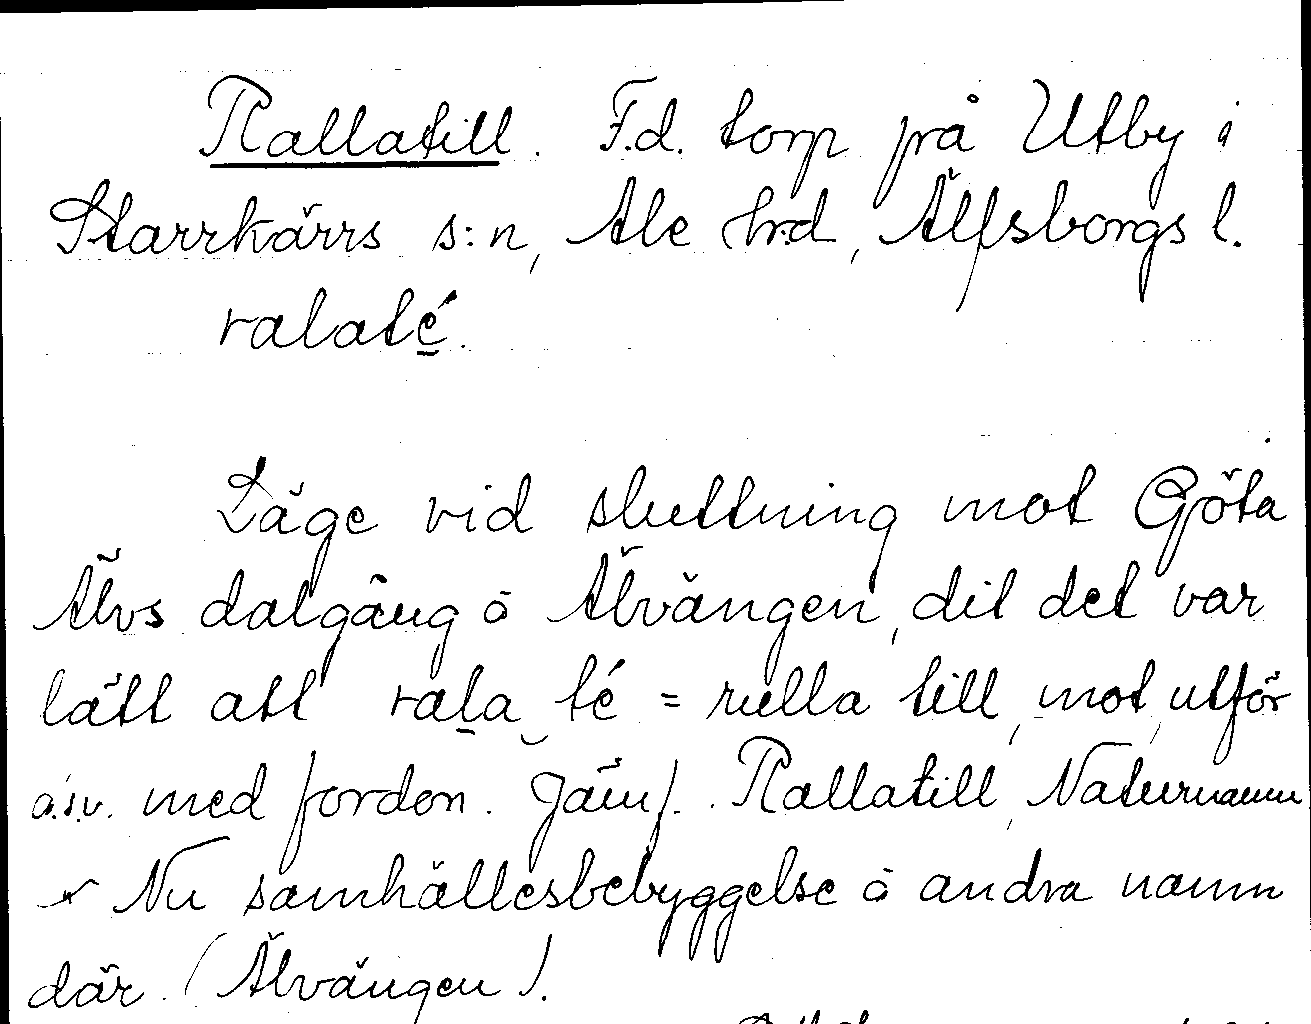 Rallatill. F.d. torp på Utby i
Starrkärrs s:n, Ale hrd, Älfsborgs l.
ralaté.
Läge vid sluttning mot Göta
Älvs dalgång o Älvängen, dit det var
lätt att rala té = rulla till, mot, utför
o.s.v. med fordon. Jämf. Rallatill, Naturnamn
Nu samhällesbebyggelse o andra namn
där. (Älvängen).